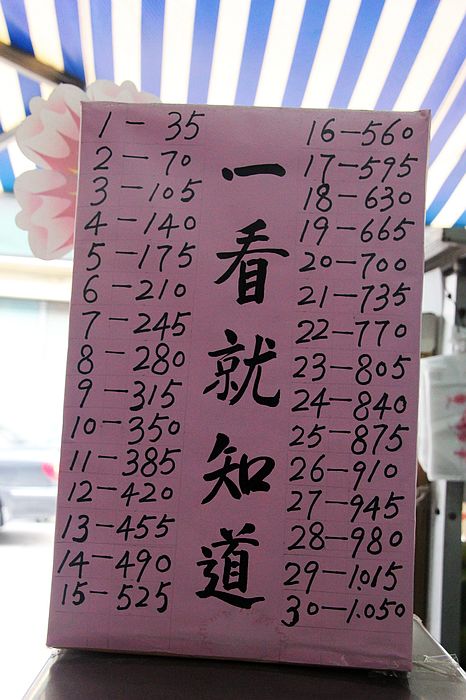 1-35
2-70
3-105
4-140
5-175
6-210
7-245
8-280
9-315
10-350
11-385
12-420
13-455
14-490
15-525
一看就知道
16-560
17-595
18-630
19-665
20-700
21-735
22-770
23-805
24-840
25-875
26-910
27-945
28-980
29-1.015
30-1.050